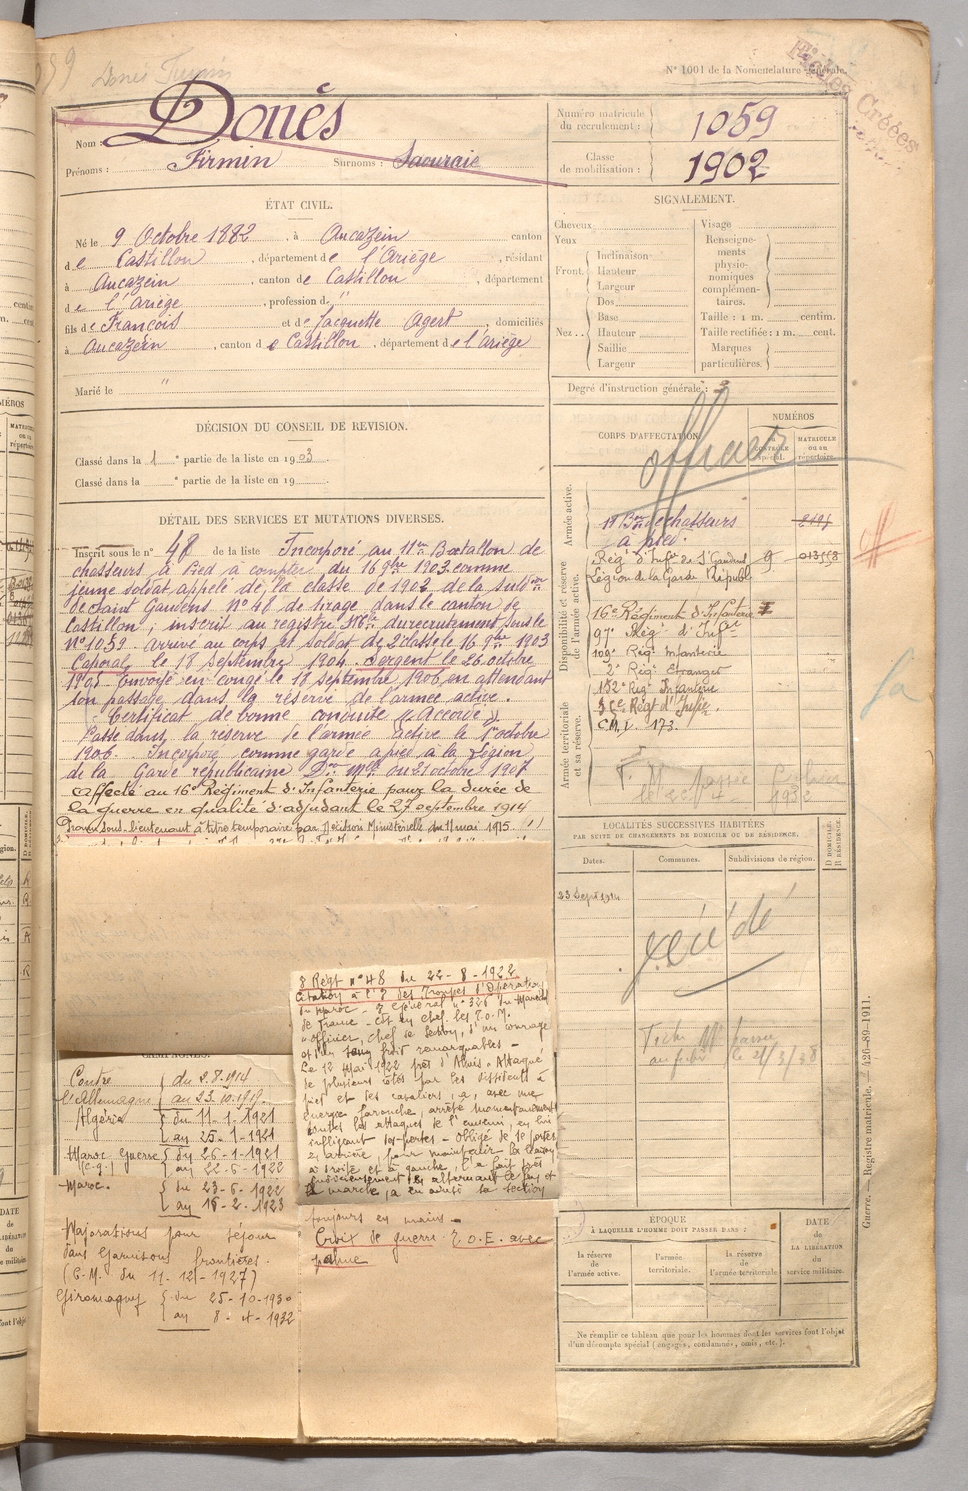 Donés Firmin
N° 1001 de la Nomenclature générale.
Fiches Créées
Nom : Donés
Prénoms : Firmin Surnoms : Saouraie
Numéro matricule du recrutement : 1059
Classe de mobilisation : 1902
ÉTAT CIVIL.
Né le 9 Octobre 1882, à Aucazein canton
de Castillon, département de l'Ariège, résidant
à Aucazein, canton de Castillon, département
de l'Ariège, profession de "
fils de François et de Jacquette Agert, domiciliés
à Aucazein, canton de Castillon, département de l'Ariège
Marié le "
DÉCISION DU CONSEIL DE REVISION.
Classé dans la 1e partie de la liste en 1903.
Classé dans la e partie de la liste en 19
DÉTAIL DES SERVICES ET MUTATIONS DIVERSES.
Inscrit sous le n° 48 de la liste Incorporé au 11me Bataillon de
chasseurs à Pied à compter du 16 9bre 1903 comme
jeune soldat appelé de la classe de 1902 de la subdon
de Saint Gaudens N° 48 de tirage dans le canton de
Castillon, inscrit au registre Mle du recrutement sous le
N° 1059. arrivé au corps et soldat de 2e classe le 16 9bre 1903
Caporal le 18 septembre 1904. Sergent le 26 octobre
1905 Envoyé en congé le 18 septembre 1906 en attendant
son passage dans la réserve de l'armée active.
Certificat de bonne conduite "Accordé"
Passé dans la réserve de l'armée active le 1er octobre
1906. Incorporé comme garde à pied à la Légion
de la Garde républicaine Don Mlle du 21 octobre 1907
Affecté au 16e Régiment d'Infanterie pour la durée de
la guerre en qualité d'adjudant le 27 septembre 1914
Promu sous-lieutenant à titre temporaire par Décision Ministérielle du 11 mai 1915
CAMPAGNES.
Contre l'Allemagne { du 2.8.1914
au 23.10.1919.
Algérie { du 11-1-1921
au 25-1-1921
Maroc Guerre (C.g.) { du 26-1-1921
au 22-6-1922
Maroc. { du 23-6-1922
au 16-2-1923
Majorations pour séjour
dans Garnisons frontières.
(C.M. du 11-12-1927)
Giromagny { du 25-10-1930
au 8-1932
Régt n° 48 du 22-8-1922
Citation à l'O des Troupes d'Opération
du Maroc - O Général n° 326 du Maréchal
de France - Cdt en chef les T.O.M.
"officier, chef de section, d'un courage
et d'un sang froid remarquables -
Le 12 Mai 1922 près d' Attaqué
de plusieurs côtés par les dissidents à
pied et des cavaliers, a, avec une
énergie farouche, arrêté momentanément
toutes les attaques de l'ennemi, en lui
infligeant des pertes - Obligé de se porter
en arrière, pour maintenir la liaison
à droite et à gauche, l'a fait très
en alternant le feu et
la marche, a eu ainsi sa section
toujours en mains -
Croix de guerre T.O.E. avec
palme
SIGNALEMENT.
Cheveux
Yeux
Front. { Inclinaison
Hauteur
Largeur
Nez. { Dos
Base
Hauteur
Saillie
Largeur
Visage
Renseignements physionomiques complémentaires.
Taille : 1 m. centim.
Taille rectifiée : 1 m. cent.
Marques particulières.
Degré d'instruction générale : 3
CORPS D'AFFECTATION
NUMÉROS
AU CONTRÔLE spécial.
MATRICULE ou au répertoire.
officier
Armée active.
11e Bon de chasseurs à pied.
Disponibilité et réserve de l'armée active.
Rég d'Infie de St Gaudens 9 013558
Légion de la Garde Républ
16e Régiment d'Infanterie
97e Rég. d'Infie
109e Rég. Infanterie
2e Rég. Etranger
152e Rég. Infanterie
Armée territoriale et sa réserve.
Régt d'Infie.
C.M.I. 173.
LOCALITÉS SUCCESSIVES HABITÉES
PAR SUITE DE CHANGEMENTS DE DOMICILE OU DE RÉSIDENCE.
Dates. Communes. Subdivisions de région.
D DOMICILE. R RÉSIDENCE.
23 Sept 1914
décédé
ÉPOQUE
À LAQUELLE L'HOMME DOIT PASSER DANS :
la réserve de l'armée active.
l'armée territoriale.
la réserve de l'armée territoriale
DATE de LA LIBÉRATION du service militaire.
Ne remplir ce tableau que pour les hommes dont les services font l'objet
d'un décompte spécial (engagés, condamnés, omis, etc.).
Guerre. — Registre matricule. — 426-89-1911.